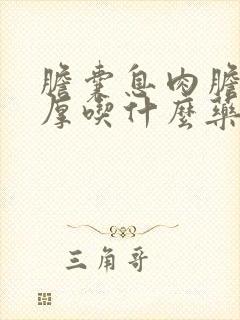 膽囊息肉膽
厚喫什麼藥
三角哥